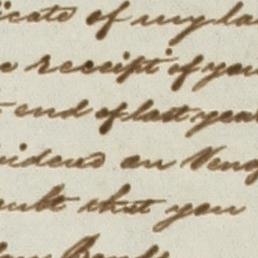 icate of my la
e receipt of you
end of last year
idend on Veng
oubt that you